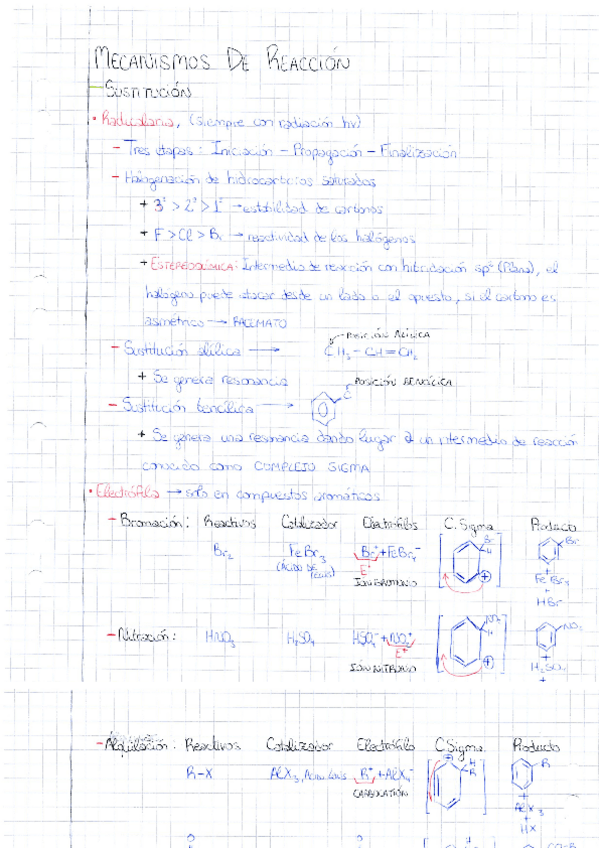 MECANISMOS DE REACCIÓN
- SUSTITUCIÓN
• Radicalaria, (siempre con radiación hv)
- Tres etapas: Iniciación - Propagación - Finalización
- Halogenación de hidrocarburos saturados
+ 3º > 2º > 1º → estabilidad de carbonos
+ F > Cl > Br → reactividad de los halógenos
+ ESTEREOQUÍMICA: Intermedio de reacción con hibridación sp² (Plano), el
halógeno puede atacar desde un lado o el opuesto, si el carbono es
asimétrico → RACEMATO
POSICIÓN ALÍLICA
- Sustitución alílica → CH₃ - CH = CH₂
+ Se genera resonancia
POSICIÓN BENCÍLICA
- Sustitución bencílica → C
+ Se genera una resonancia dando lugar a un intermedio de reacción
conocido como COMPLEJO SIGMA
• Electrófila → solo en compuestos aromáticos
- Bromación: Reactivos Catalizador Electrófilo C. Sigma Producto
Br₂ FeBr₃ Br⁺ + FeBr₄⁻ Br H Br
(ÁCIDO DE LEWIS) E⁺ +
IÓN BROMONIO FeBr₄
+
HBr
- Nitración: HNO₃ H₂SO₄ HSO₄⁻ + NO₂⁺ NO₂ H NO₂
E⁺ +
IÓN NITRONIO H₂SO₄
+
- Alquilación: Reactivos Catalizador Electrófilo C. Sigma Producto
R-X AlX₃, Ácido Lewis R⁺ + AlX₄⁻ H R R
CARBOCATIÓN +
AlX₃
+
HX